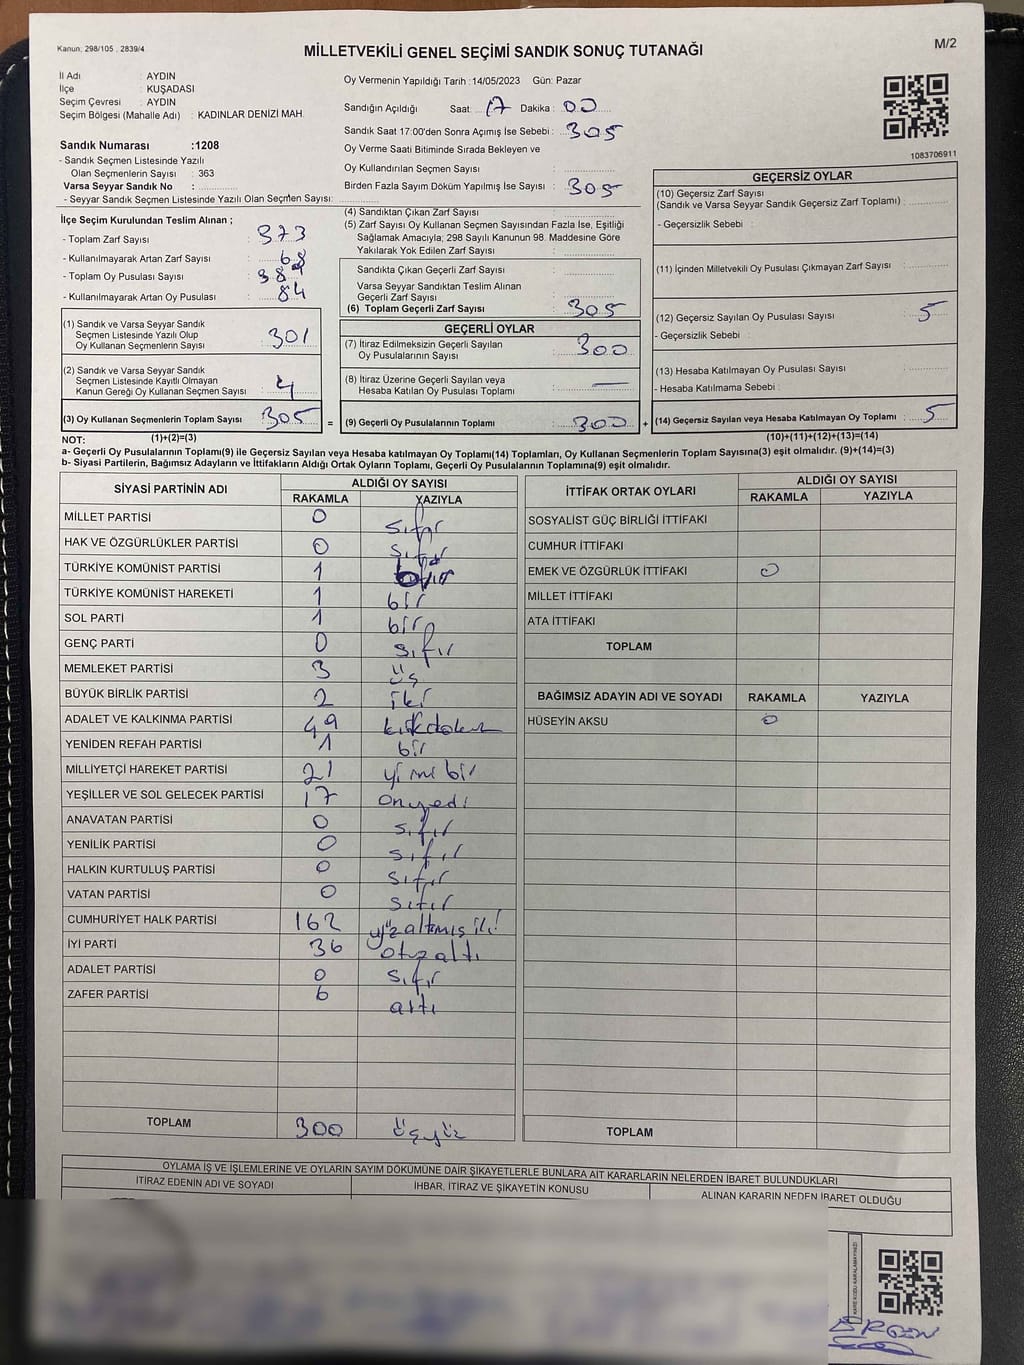 Kanun; 298/105 , 2839/4
MİLLETVEKİLİ GENEL SEÇİMİ SANDIK SONUÇ TUTANAĞI
M/2
İl Adı : AYDIN
İlçe : KUŞADASI
Seçim Çevresi : AYDIN
Seçim Bölgesi (Mahalle Adı) : KADINLAR DENİZİ MAH.
Oy Vermenin Yapıldığı Tarih :14/05/2023 Gün: Pazar
Sandığın Açıldığı Saat: 17 Dakika : 00
Sandık Saat 17:00'den Sonra Açımış İse Sebebi : 305
Oy Verme Saati Bitiminde Sırada Bekleyen ve
Oy Kullandırılan Seçmen Sayısı :
Birden Fazla Sayım Döküm Yapılmış İse Sayısı : 305
1083706911
Sandık Numarası :1208
- Sandık Seçmen Listesinde Yazılı
Olan Seçmenlerin Sayısı : 363
Varsa Seyyar Sandık No :
- Seyyar Sandık Seçmen Listesinde Yazılı Olan Seçmen Sayısı:
İlçe Seçim Kurulundan Teslim Alınan ;
- Toplam Zarf Sayısı : 373
- Kullanılmayarak Artan Zarf Sayısı : 68
- Toplam Oy Pusulası Sayısı :
- Kullanılmayarak Artan Oy Pusulası : 84
(1) Sandık ve Varsa Seyyar Sandık
Seçmen Listesinde Yazılı Olup
Oy Kullanan Seçmenlerin Sayısı : 301
(2) Sandık ve Varsa Seyyar Sandık
Seçmen Listesinde Kayıtlı Olmayan
Kanun Gereği Oy Kullanan Seçmen Sayısı : 4
(3) Oy Kullanan Seçmenlerin Toplam Sayısı : 305
(4) Sandıktan Çıkan Zarf Sayısı :
(5) Zarf Sayısı Oy Kullanan Seçmen Sayısından Fazla İse, Eşitliği
Sağlamak Amacıyla; 298 Sayılı Kanunun 98. Maddesine Göre
Yakılarak Yok Edilen Zarf Sayısı :
Sandıkta Çıkan Geçerli Zarf Sayısı :
Varsa Seyyar Sandıktan Teslim Alınan
Geçerli Zarf Sayısı :
(6) Toplam Geçerli Zarf Sayısı : 305
GEÇERLİ OYLAR
(7) İtiraz Edilmeksizin Geçerli Sayılan
Oy Pusulalarının Sayısı : 300
(8) İtiraz Üzerine Geçerli Sayılan veya
Hesaba Katılan Oy Pusulası Toplamı : —
= (9) Geçerli Oy Pusulalarının Toplamı : 300
GEÇERSİZ OYLAR
(10) Geçersiz Zarf Sayısı
(Sandık ve Varsa Seyyar Sandık Geçersiz Zarf Toplamı) :
- Geçersizlik Sebebi :
(11) İçinden Milletvekili Oy Pusulası Çıkmayan Zarf Sayısı :
(12) Geçersiz Sayılan Oy Pusulası Sayısı : 5
- Geçersizlik Sebebi :
(13) Hesaba Katılmayan Oy Pusulası Sayısı :
- Hesaba Katılmama Sebebi :
+ (14) Geçersiz Sayılan veya Hesaba Katılmayan Oy Toplamı : 5
NOT: (1)+(2)=(3)
(10)+(11)+(12)+(13)=(14)
a- Geçerli Oy Pusulalarının Toplamı(9) ile Geçersiz Sayılan veya Hesaba katılmayan Oy Toplamı(14) Toplamları, Oy Kullanan Seçmenlerin Toplam Sayısına(3) eşit olmalıdır. (9)+(14)=(3)
b- Siyasi Partilerin, Bağımsız Adayların ve İttifakların Aldığı Ortak Oyların Toplamı, Geçerli Oy Pusulalarının Toplamına(9) eşit olmalıdır.
SİYASİ PARTİNİN ADI
ALDIĞI OY SAYISI
RAKAMLA YAZIYLA
MİLLET PARTİSİ 0 sıfır
HAK VE ÖZGÜRLÜKLER PARTİSİ 0 sıfır
TÜRKİYE KOMÜNİST PARTİSİ 1
TÜRKİYE KOMÜNİST HAREKETİ 1 bir
SOL PARTİ 1 bir
GENÇ PARTİ 0 sıfır
MEMLEKET PARTİSİ 3 üç
BÜYÜK BİRLİK PARTİSİ 2 iki
ADALET VE KALKINMA PARTİSİ 49
YENİDEN REFAH PARTİSİ 1 bir
MİLLİYETÇİ HAREKET PARTİSİ 21
YEŞİLLER VE SOL GELECEK PARTİSİ 17 onyedi
ANAVATAN PARTİSİ 0 sıfır
YENİLİK PARTİSİ 0 sıfır
HALKIN KURTULUŞ PARTİSİ 0 sıfır
VATAN PARTİSİ 0 sıfır
CUMHURİYET HALK PARTİSİ 162 yüzaltmış iki
İYİ PARTİ 36 otuzaltı
ADALET PARTİSİ 0 sıfır
ZAFER PARTİSİ 6 altı
TOPLAM 300 üçyüz
İTTİFAK ORTAK OYLARI
ALDIĞI OY SAYISI
RAKAMLA YAZIYLA
SOSYALİST GÜÇ BİRLİĞİ İTTİFAKI
CUMHUR İTTİFAKI
EMEK VE ÖZGÜRLÜK İTTİFAKI 0
MİLLET İTTİFAKI
ATA İTTİFAKI
TOPLAM
BAĞIMSIZ ADAYIN ADI VE SOYADI RAKAMLA YAZIYLA
HÜSEYİN AKSU 0
TOPLAM
OYLAMA İŞ VE İŞLEMLERİNE VE OYLARIN SAYIM DÖKÜMÜNE DAİR ŞİKAYETLERLE BUNLARA AİT KARARLARIN NELERDEN İBARET BULUNDUKLARI
İTİRAZ EDENİN ADI VE SOYADI
İHBAR, İTİRAZ VE ŞİKAYETİN KONUSU
ALINAN KARARIN NEDEN İBARET OLDUĞU
KARE KODU KARALAMAYINIZ!
ERGEN